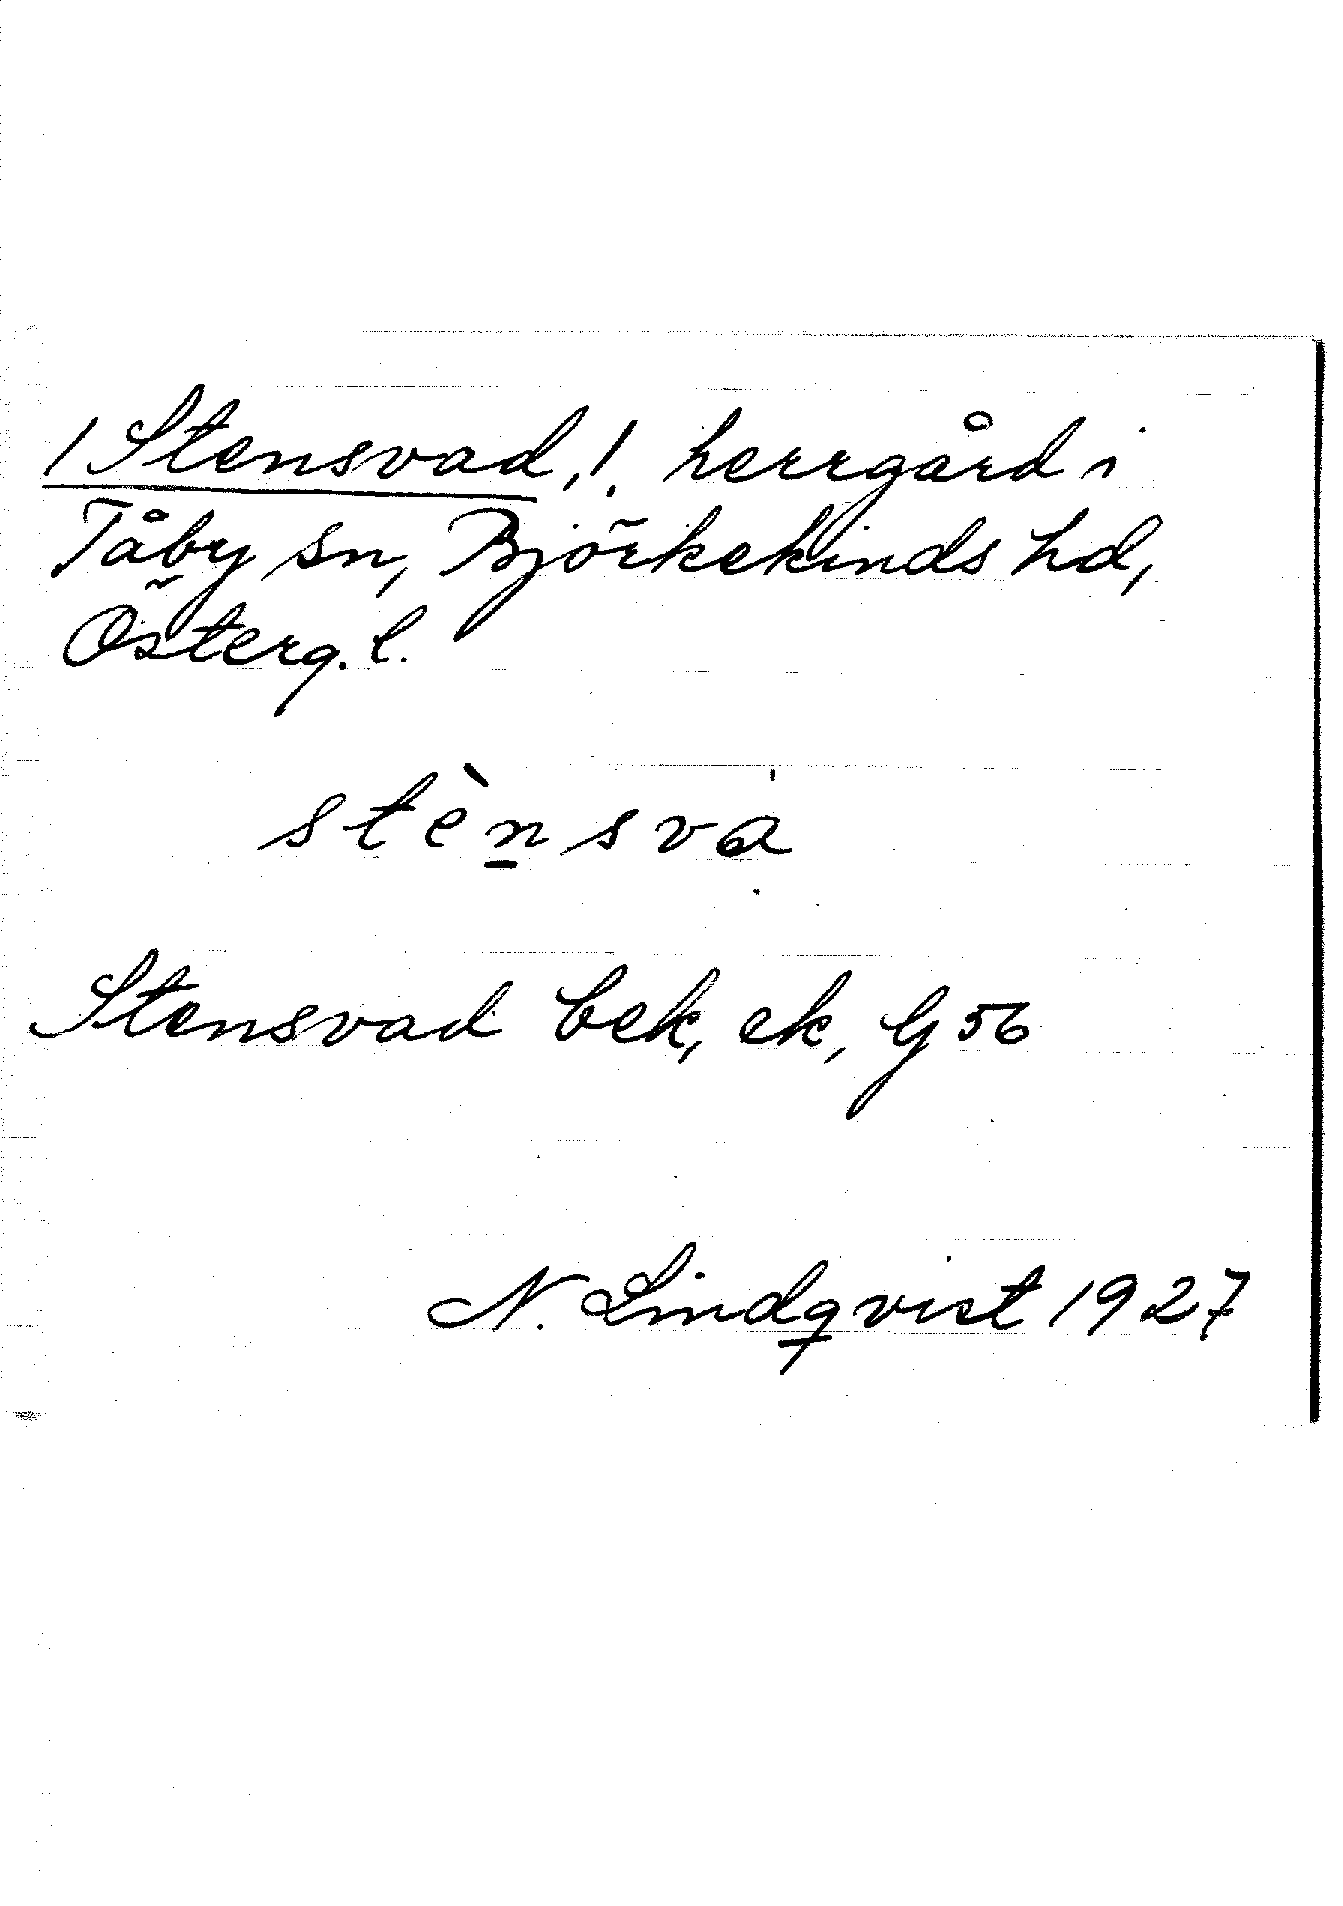 /Stensvad,/. herrgård i
Tåby sn, Björkekinds hd,
Österg. l.
stènsvȧ
Stensvad bek, ek, G 56
N. Lindqvist 1927